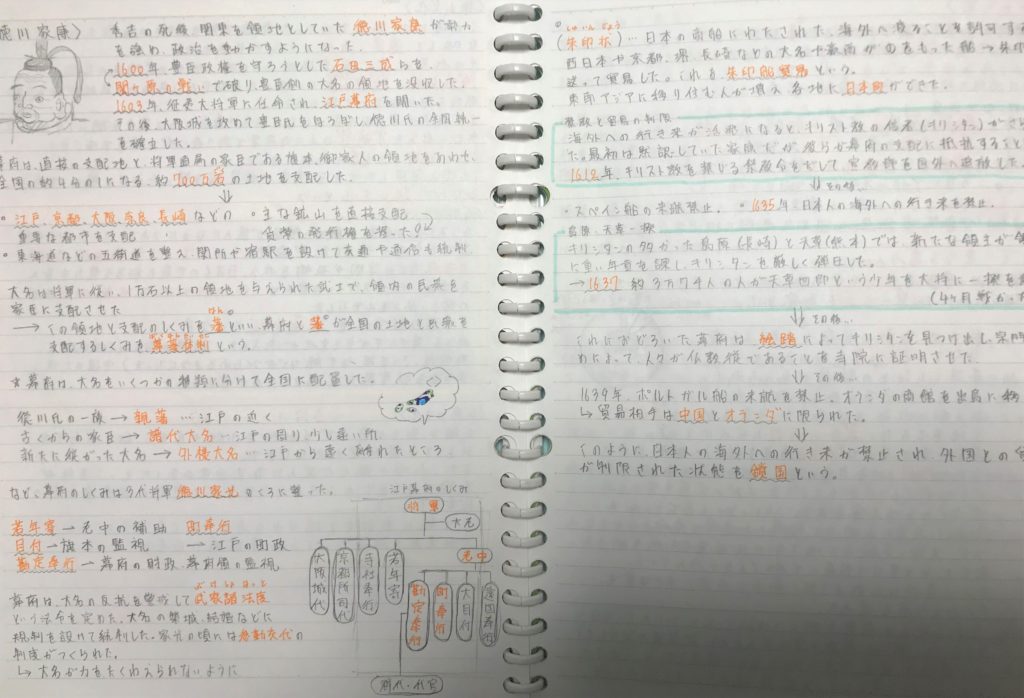 徳川家康)
秀吉の死後、関東を領地としていた 徳川家康 が勢力
を強め、政治を動かすようになった。
1600年、豊臣政権を守ろうとした石田三成らを、
関ヶ原の戦いで破り、豊臣側の大名の領地を没収した。
1603年、征夷大将軍に任命され、江戸幕府を開いた。
その後、大阪城を攻めて豊臣氏をほろぼし、徳川氏の全国統一
を確立した。
幕府は、直接の支配地と、将軍直属の家臣である旗本、御家人の領地をあわせ、
全国の約4分の1になる、約700万石の土地を支配した。
⇓
・江戸、京都、大阪、奈良、長崎などの
重要な都市を支配
・主な鉱山を直接支配
貨幣の発行権を握った
・東海道などの五街道を整え、関所や宿駅を設けて交通や通信も統制
大名は将軍に従い、1万石以上の領地を与えられた武士で、領内の民衆を
家臣に支配させた
→ この領地と支配のしくみを藩といい、幕府と藩が全国の土地と民衆を
はん
支配するしくみを、幕藩体制という。
★幕府は、大名をいくつかの種類に分けて全国に配置した。
徳川氏の一族 → 親藩 …江戸の近く
古くからの家臣 → 譜代大名 …江戸の周り、少し遠い所
新たに従がった大名 → 外様大名 …江戸から遠く離れたところ
など、幕府のしくみは3代将軍徳川家光のころに整った。
若年寄 → 老中の補助 町奉行
目付 → 旗本の監視 → 江戸の町政
勘定奉行 → 幕府の財政、幕府領の監視
ぶけしょはっと
幕府は、大名の反抗を警戒して武家諸法度
という法令を定めた。大名の築城、結婚などに
規制を設けて統制した。家光の頃には参勤交代の
制度がつくられた。
↳ 大名が力をたくわえられないように
江戸幕府のしくみ
将軍
大老
老中
大阪城代
京都所司代
寺社奉行
若年寄
勘定奉行
町奉行
大目付
郡代・代官
しゅいんじょう
(朱印状)…日本の商船にわたされた、海外へ渡ることを許可する
西日本や京都、堺、長崎などの大名や豪商が
送って貿易した。これを、朱印船貿易という。
東南アジアに移り住む人が増え、各地に日本町ができた。
禁教と貿易の制限
海外への行き来が活発になると、キリスト教の信者(キリシタン)が
た。最初は黙認していた家康だが、彼らが幕府の支配に抵抗すること
1612年、キリスト教を禁じる禁教令をだして、宣教師を国外へ追放した。
⇓ その後…
・スペイン船の来航禁止。 ・1635年、日本人の海外への行き来を禁止。
・島原・天草一揆
キリシタンの多かった島原(長崎)と天草(熊本)では、新たな領主が
に重い年貢を課し、キリシタンを厳しく弾圧した。
→ 1637 約3万7千人の人が天草四郎という少年を大将に一揆を
(4ヶ月戦がった
⇓ その後…
これにおどろいた幕府は、絵踏によってキリシタンを見つけ出し、宗門
めによって、人々が仏教徒であることを寺院に証明させた。
⇓ その後…
1639年、ポルトガル船の来航を禁止、オランダの商館を出島に移
↳ 貿易相手は中国とオランダに限られた。
⇓
このように、日本人の海外への行き来が禁止され、外国との
が制限された状態を鎖国という。